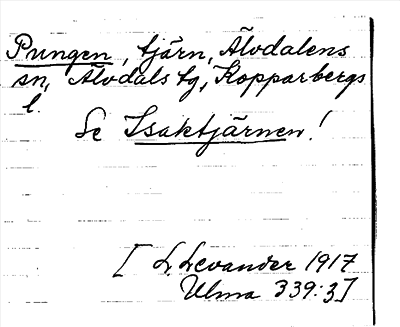 Pungen, tjärn, Älvdalens
sn, Älvdals tg, Kopparbergs
l.
Se Isaktjärnen!
[ L. Levander 1917
Ulma 339:3]